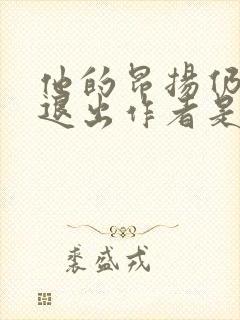 他的昂揚仍
退出作者是
裘盛戎